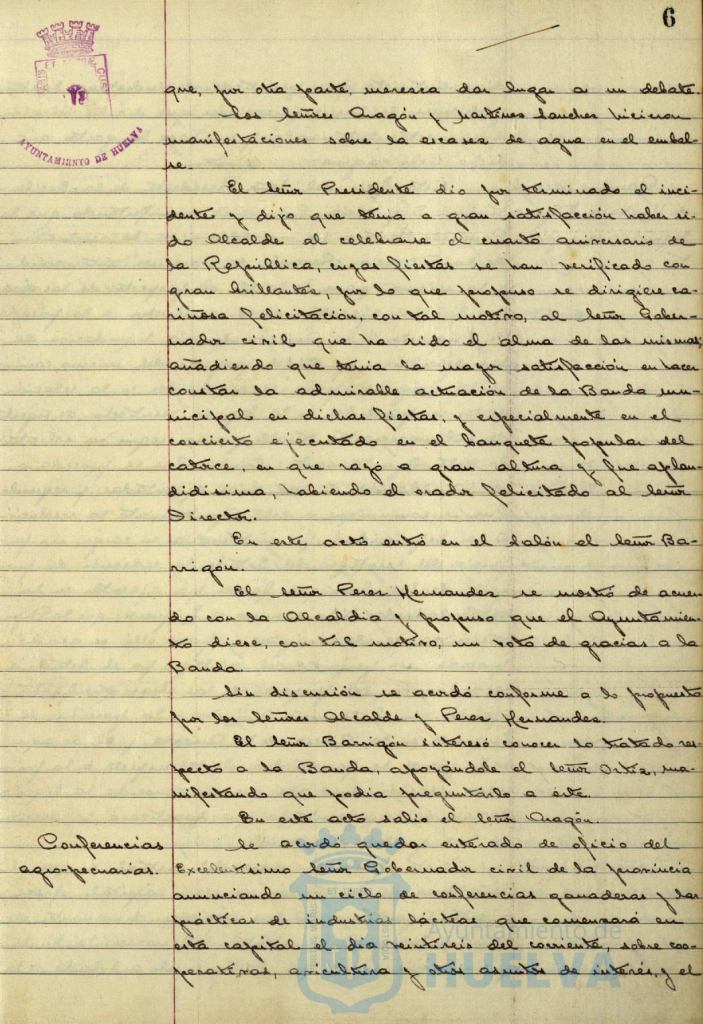 6
AYUNTAMIENTO DE HUELVA
que, por otra parte, merezca dar lugar a un debate.
Los Señores Aragón y Martínez Sanchez hicieron
manifestaciones sobre la escasez de agua en el embal-
se.
El Señor Presidente dio por terminado el inci-
dente y dijo que tenia a gran satisfacción haber si-
do Alcalde al celebrarse el cuarto aniversario de
la República, cuyas fiestas se han verificado con
gran brillantez, por lo que propuso se dirigiese ca-
riñosa felicitación, con tal motivo, al Señor Gober-
nador civil que ha sido el alma de las mismas;
añadiendo que tenia la mayor satisfacción en hacer
constar la admirable actuación de la Banda mu-
nicipal en dichas fiestas, y especialmente en el
concierto ejecutado en el banquete popular del
catorce, en que rayó a gran altura y fue aplau-
didisima, habiendo el orador felicitado al Señor
Director.
En este acto entró en el Salón el Señor Ba-
rrigón.
El Señor Perez Hernandez se mostró de acuer-
do con la Alcaldia y propuso que el Ayuntamien-
to diese, con tal motivo, un voto de gracias a la
Banda.
Sin discusión se acordó conforme a lo propuesto
por los Señores Alcalde y Perez Hernandez.
El Señor Barrigón interesó conocer lo tratado res-
pecto a la Banda, apoyándole el Señor Ortiz, ma-
nifestando que podia preguntarlo a éste.
En este acto salio el Señor Aragón.
Conferencias
agro-pecuarias.
Se acordó quedar enterado de oficio del
Excelentisimo Señor Gobernador civil de la provincia
anunciando un ciclo de conferencias ganaderas y las
prácticas de industrias lácteas que comenzará en
esta capital el dia veintiseis del corriente, sobre coo-
perativas, avicultura y otros asuntos de interés, y el
Ayuntamiento de
HUELVA